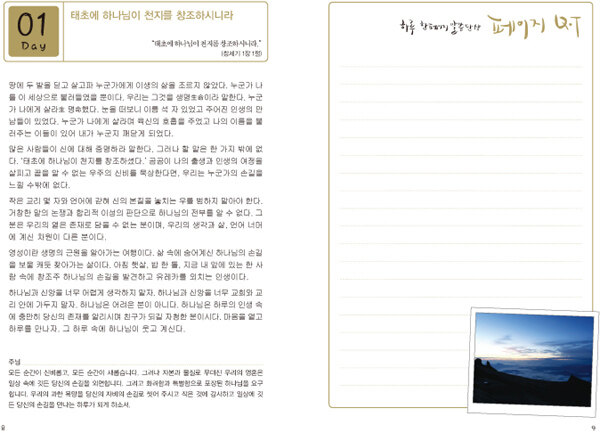 01
Day
태초에 하나님이 천지를 창조하시니라
"태초에 하나님이 천지를 창조하시니라."
(창세기 1장 1절)
땅에 두 발을 딛고 살고파 누군가에게 이생의 삶을 조르지 않았다. 누군가 나
를 이 세상으로 불러들였을 뿐이다. 우리는 그것을 생명生命이라 말한다. 누군
가 나에게 살라生 명命했다. 눈을 떠보니 이름 석 자 있었고 주어진 인생의 만
남들이 있었다. 누군가 나에게 살라며 육신의 호흡을 주었고 나의 이름을 불
러주는 이들이 있어 내가 누군지 깨닫게 되었다.
많은 사람들이 신에 대해 증명하라 말한다. 그러나 할 말은 한 가지 밖에 없
다. '태초에 하나님이 천지를 창조하셨다.' 곰곰이 나의 출생과 인생의 여정을
살피고 끝을 알 수 없는 우주의 신비를 묵상한다면, 우리는 누군가의 손길을
느낄 수밖에 없다.
작은 교리 몇 자와 언어에 갇혀 신의 본질을 놓치는 우를 범하지 말아야 한다.
거창한 말의 논쟁과 합리적 이성의 판단으로 하나님의 전부를 알 수 없다. 그
분은 우리의 옅은 존재로 담을 수 없는 분이며, 우리의 생각과 삶, 언어 너머
에 계신 차원이 다른 분이다.
영성이란 생명의 근원을 알아가는 여행이다. 삶 속에 숨어계신 하나님의 손길
을 보물 캐듯 찾아가는 삶이다. 아침 햇살, 밥 한 톨, 지금 내 앞에 있는 한 사
람 속에 창조주 하나님의 손길을 발견하고 유레카를 외치는 인생이다.
하나님과 신앙을 너무 어렵게 생각하지 말자. 하나님과 신앙을 너무 교회와 교
리 안에 가두지 말자. 하나님은 어려운 분이 아니다. 하나님은 하루의 인생 속
에 충만히 당신의 존재를 알리시며 친구가 되길 자청한 분이시다. 마음을 열고
하루를 만나자. 그 하루 속에 하나님이 웃고 계신다.
주님
모든 순간이 신비롭고, 모든 순간이 새롭습니다. 그러나 자본과 물질로 무뎌진 우리의 영혼은
일상 속에 깃든 당신의 손길을 외면합니다. 그리고 화려함과 특별함으로 포장된 하나님을 요구
합니다. 우리의 과한 욕망을 당신의 자비의 손길로 씻어 주시고 작은 것에 감사하고 일상에 깃
든 당신의 손길을 만나는 하루가 되게 하소서.
8
하루 한 페이지 말씀 단상
페이지 Q.T
9